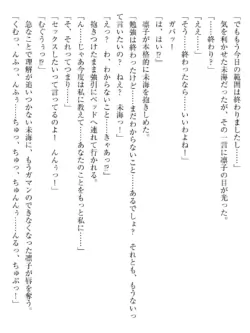 でももう今日の範囲は終わりましたし……」
気を利かせた未海だったが、その一言に凛子の目が光った。
「そう……終わったなら……いいわよね」
「ええ……」
ガバッ！
凛子が本格的に未海を抱きしめた。
「勉強は終わったけど……まだわからないこと……あるでしょ？　それとも、もう
て言いたい？　ねえ？　未海！」
「えっ？　わ、わからないこと……きゃあっ？」
抱きつけたまま強引にベッドへ連れて行かれる。
「じゃあ今度は私に教えて……あなたのことをもっと私に……」
「そ、それってつまり……！」
「セックスしたいって言ってるのよ！　んんぅっ！」
「むぐぅっ！」
急なことで理解が追いつかない未海に、もうガマンのできなくなった凛子が唇を奪う。
「くむっ、んふぅ……ちゅっ、ちゅぷ、ちゅっ！」